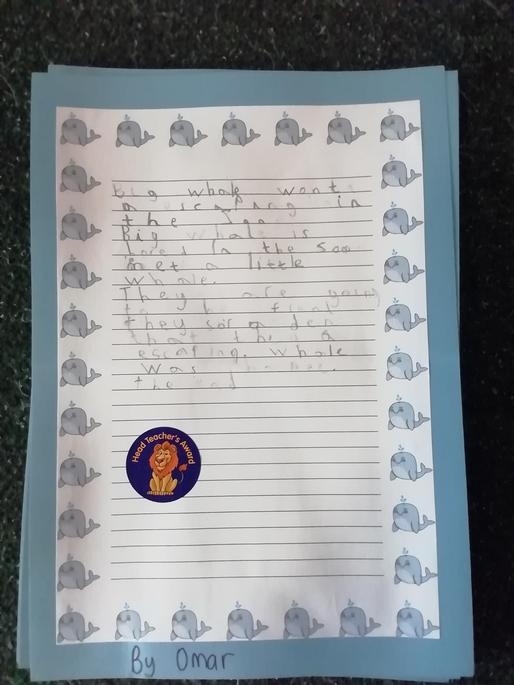 Big whale went
a scaping in
the
Big whale is
in the soo
met a little
whale.
They are going
to be
they sor a den
that the a
escaping. whale
was
the end
Head Teacher's Award
By Omar